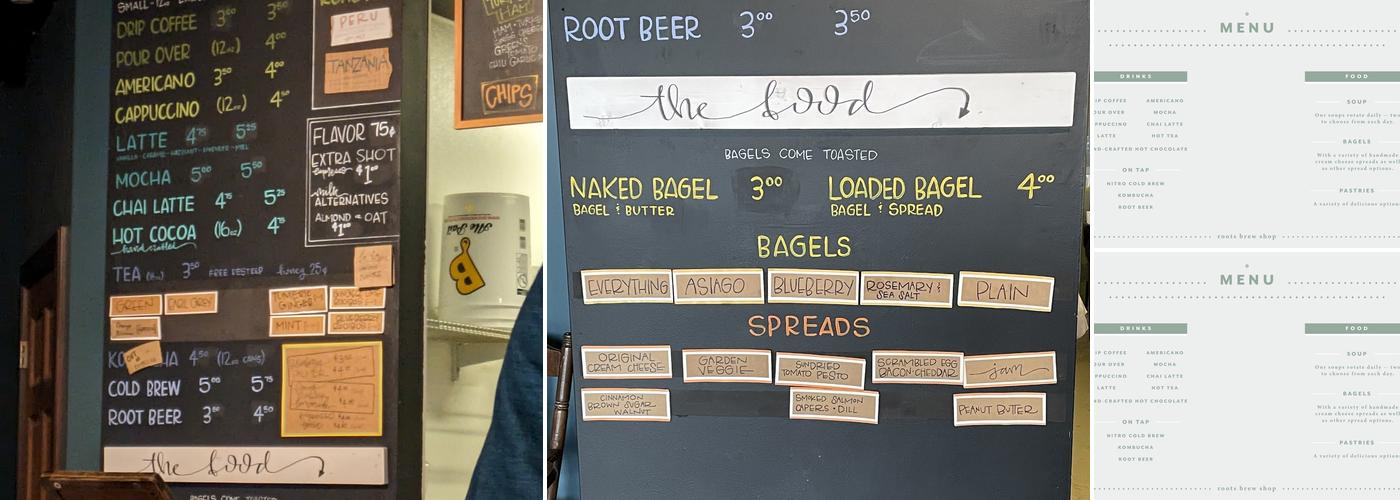 SMALL-12
DRIP COFFEE 3⁰⁰ 3⁵⁰
POUR OVER (12oz) 4⁰⁰
AMERICANO 3⁵⁰ 4⁰⁰
CAPPUCCINO (12oz) 4⁵⁰
LATTE 4⁷⁵ 5²⁵
MOCHA 5⁰⁰ 5⁵⁰
CHAI LATTE 4⁷⁵ 5²⁵
HOT COCOA (16oz) 4⁷⁵
hand-crafted
TEA 3⁵⁰ FREE RESTEEP honey 25¢
GREEN
EARL GREY
TURMERIC GINGER
MINT
BLUEBERRY
4⁵⁰ (12oz CANS)
COLD BREW 5⁰⁰ 5⁷⁵
ROOT BEER 4⁵⁰
the food
BAGELS COME TOASTED
PERU
TANZANIA
FLAVOR 75¢
EXTRA SHOT
espresso $1⁰⁰
milk
ALTERNATIVES
ALMOND - OAT
$1⁰⁰
HAM
CHIPS
ROOT BEER 3⁰⁰ 3⁵⁰
the food
BAGELS COME TOASTED
NAKED BAGEL 3⁰⁰
BAGEL & BUTTER
LOADED BAGEL 4⁰⁰
BAGEL & SPREAD
BAGELS
EVERYTHING
ASIAGO
BLUEBERRY
ROSEMARY &
SEA SALT
PLAIN
SPREADS
ORIGINAL
CREAM CHEESE
GARDEN
VEGGIE
SUNDRIED
TOMATO PESTO
SCRAMBLED EGG
BACON-CHEDDAR
jam
CINNAMON
BROWN SUGAR
WALNUT
SMOKED SALMON
CAPERS • DILL
PEANUT BUTTER
MENU
DRINKS
IP COFFEE AMERICANO
UR OVER MOCHA
PPUCCINO CHAI LATTE
LATTE HOT TEA
ND-CRAFTED HOT CHOCOLATE
ON TAP
NITRO COLD BREW
KOMBUCHA
ROOT BEER
FOOD
SOUP
Our soups rotate daily — two
to choose from each day.
BAGELS
With a variety of handmade
cream cheese spreads as well
as other spread options.
PASTRIES
A variety of delicious option
roots brew shop
MENU
DRINKS
IP COFFEE AMERICANO
UR OVER MOCHA
PPUCCINO CHAI LATTE
LATTE HOT TEA
ND-CRAFTED HOT CHOCOLATE
ON TAP
NITRO COLD BREW
KOMBUCHA
ROOT BEER
FOOD
SOUP
Our soups rotate daily — two
to choose from each day.
BAGELS
With a variety of handmade
cream cheese spreads as well
as other spread options.
PASTRIES
A variety of delicious option
roots brew shop